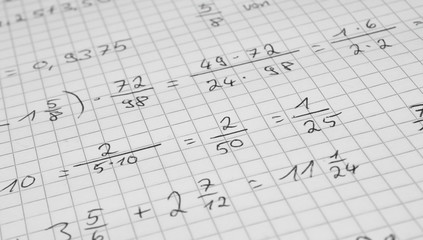 2,5+3,5
5/8 von
= 0,9375
- 1 5/8 ) · 72/98 = 49 · 72 / 24 · 98 = 1 · 6 / 2 · 2 =
10 = 2 / 5·10 = 2/50 = 1/25
3 5/6 + 2 7/12 = 11 1/24